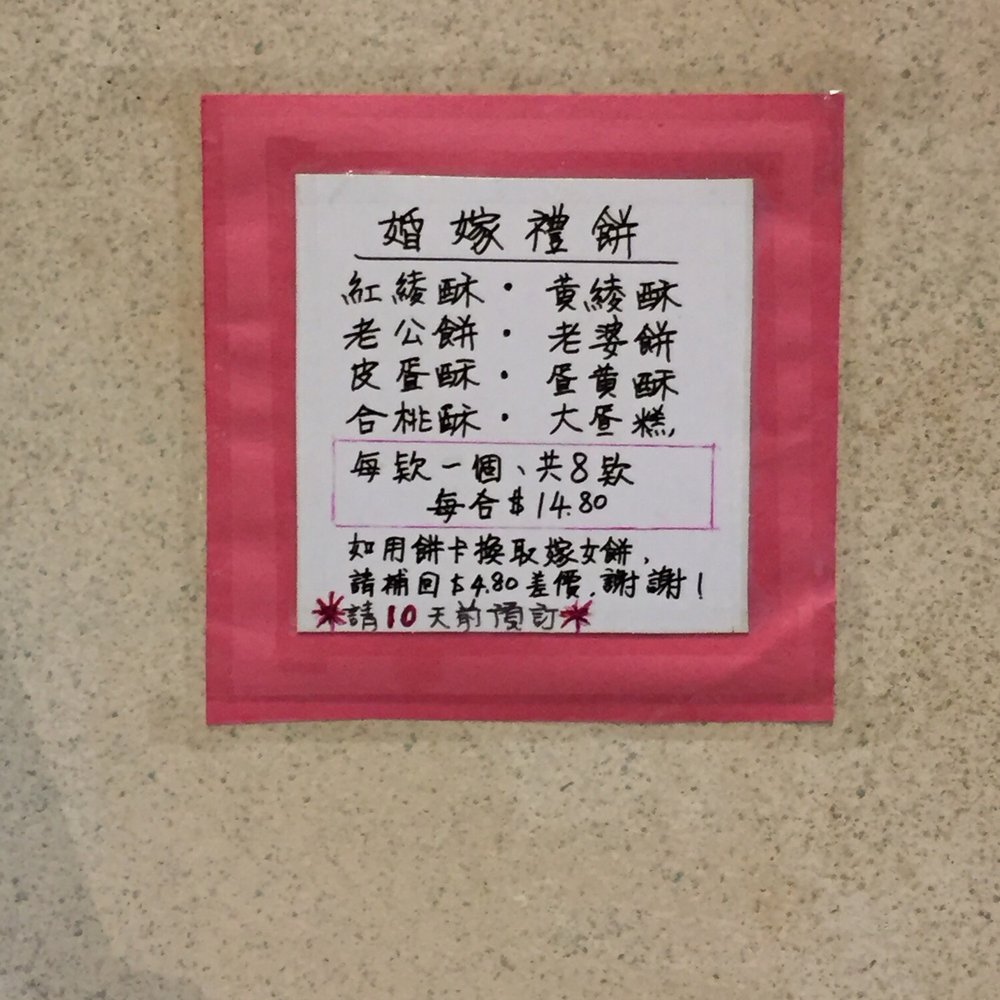 婚嫁禮餅
紅綾酥·黃綾酥
老公餅·老婆餅
皮蛋酥·蛋黃酥
合桃酥·大蛋糕,
每款一個、共8款
每合$14.80
如用餅卡換取嫁女餅,
請補回$4.80差價,謝謝!
*請10天前預訂*